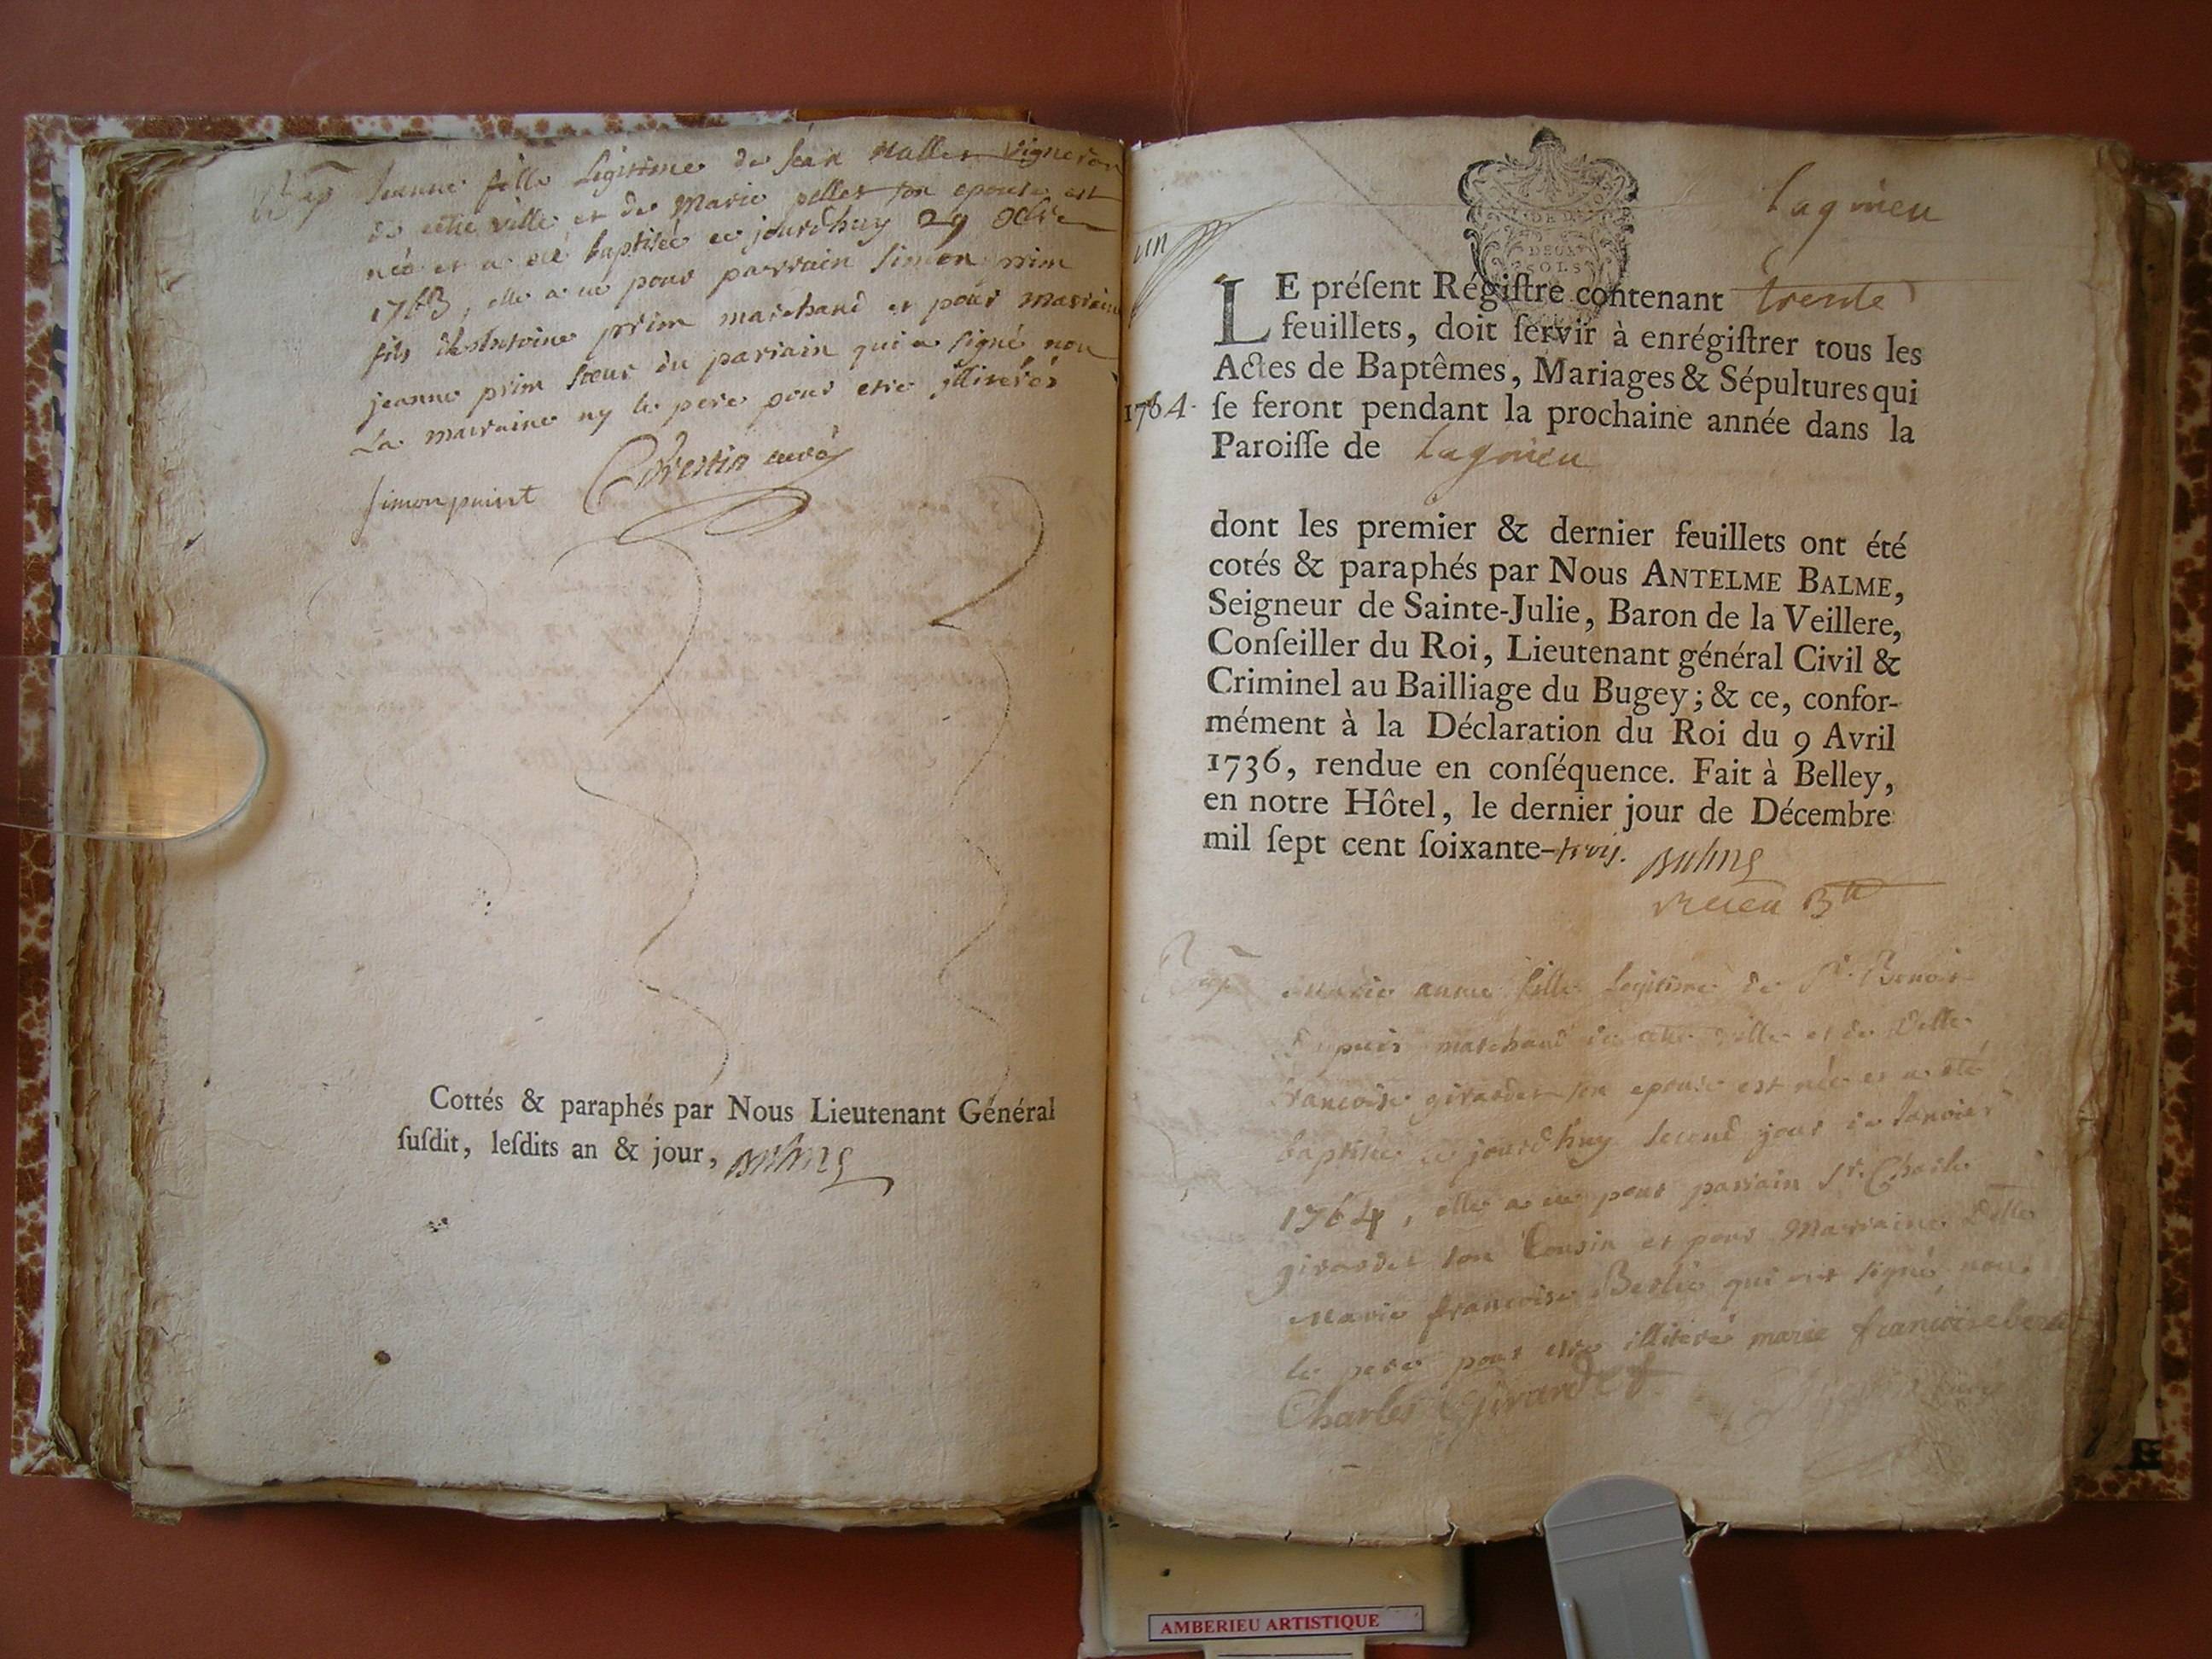 Bap Jeanne fille Legitime de jean Mallet vigneron
de cette ville et de Marie pellet son epouse est
née et a été baptisée ce jourdhuy 29 Xbre
1763, elle a eu pour parrain Simon prim
fils d'Antoine prim marchand et pour marraine
jeanne prim sœur du parrain qui a signé non
La marraine ny le pere pour etre illiterés
simon curé
Cottés & paraphés par Nous Lieutenant Général
ſuſdit, leſdits an & jour, Balme
lagnieu
un
DEUX
SOLS
LE préſent Régiſtre contenant trente
feuillets, doit ſervir à enrégiſtrer tous les
Actes de Baptêmes, Mariages & Sépultures qui
1764. ſe feront pendant la prochaine année dans la
Paroiſſe de lagnieu
dont les premier & dernier feuillets ont été
cotés & paraphés par Nous ANTELME BALME,
Seigneur de Sainte-Julie, Baron de la Veillere,
Conſeiller du Roi, Lieutenant général Civil &
Criminel au Bailliage du Bugey; & ce, confor-
mément à la Déclaration du Roi du 9 Avril
1736, rendue en conſéquence. Fait à Belley,
en notre Hôtel, le dernier jour de Décembre
mil ſept cent ſoixante-trois. Balme
Bap Marie anne fille Legitime de Sr. Benoit
Dupuis marchand de cette ville et de Delle
francoise girardet son epouse est née et a été
baptisée ce jourdhuy second jour de Janvier
1764, elle a eu pour parrain Sr. Charle
girardet son Cousin et pour Marraine Delle
Marie francoise Berlie qui ont signé non
le pere pour etre illiteré marie francoise
Charles Girardet
AMBERIEU ARTISTIQUE